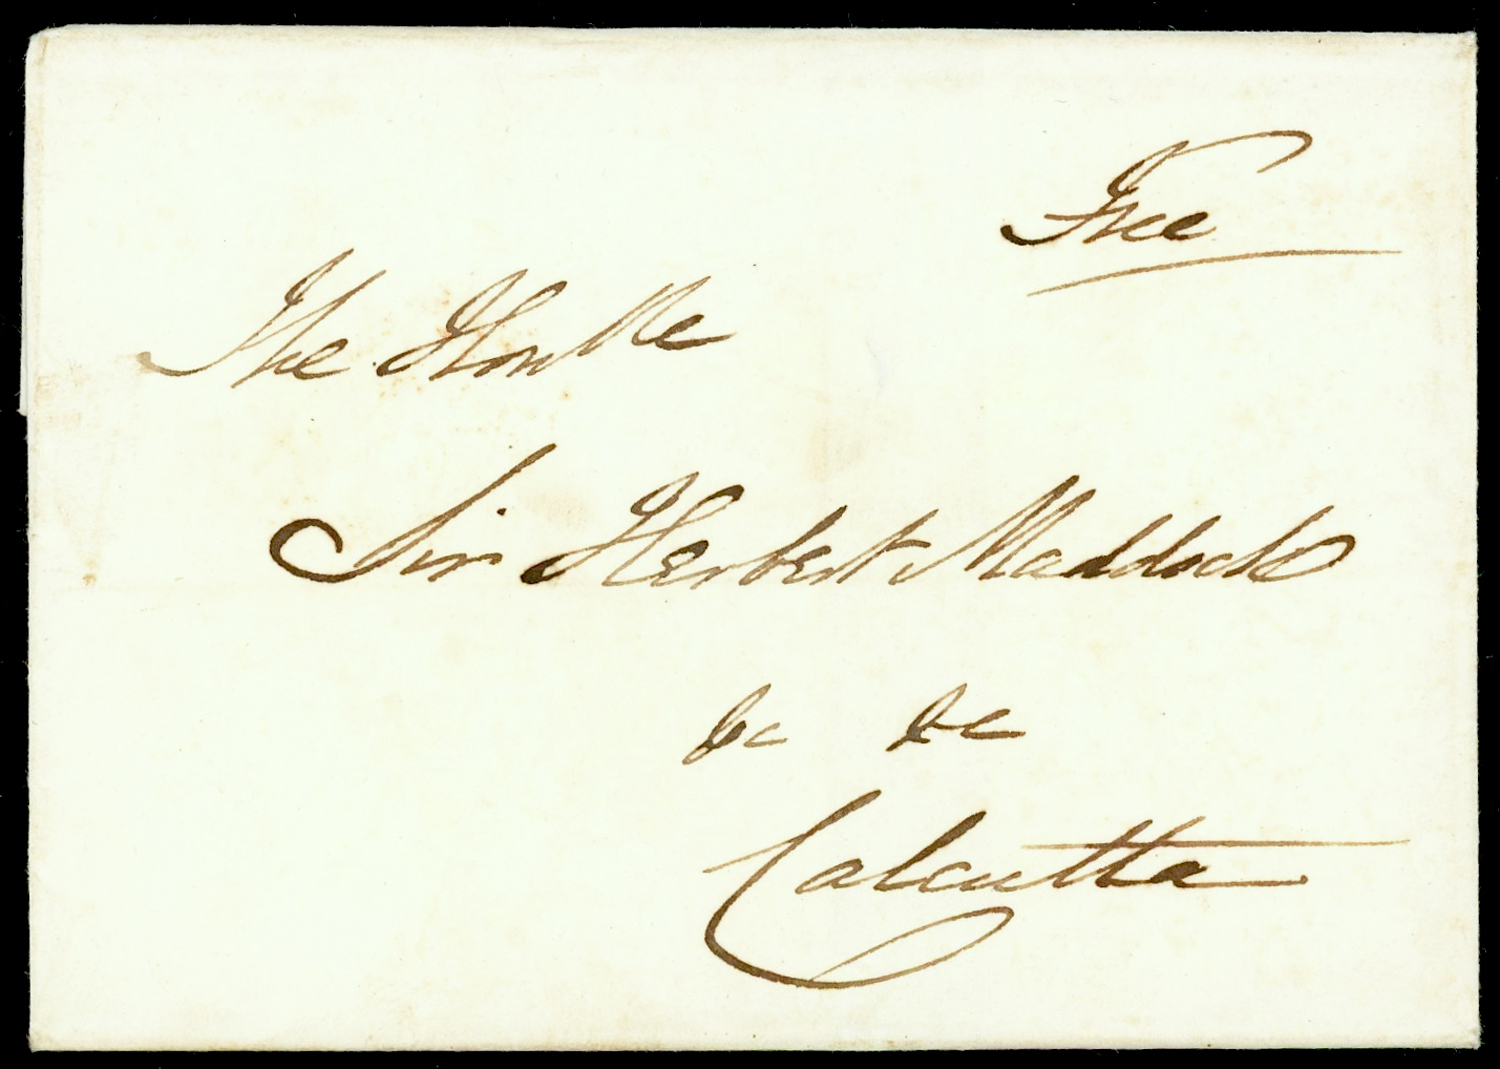 Free
The Honble
Sir Herbert Maddock
&c &c
Calcutta